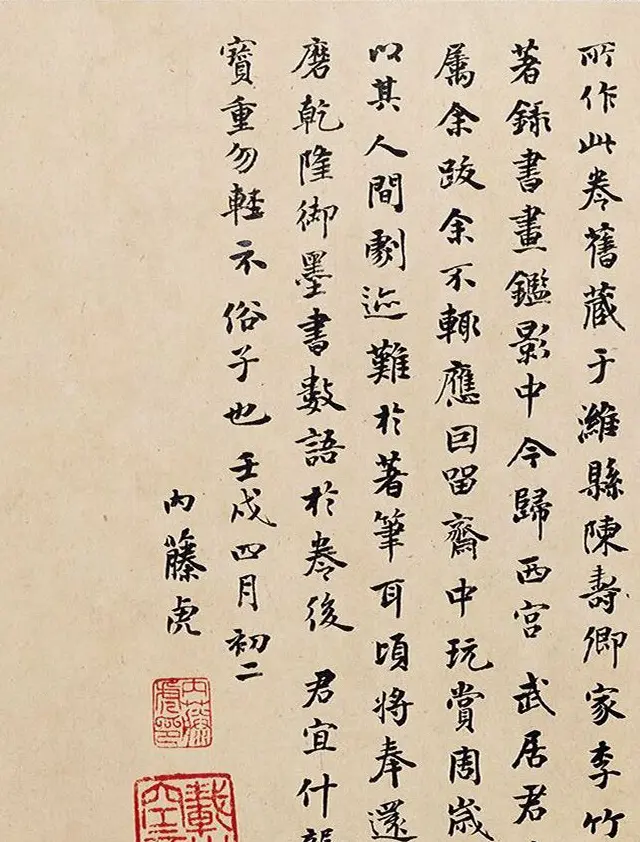 所作此卷舊蔵于濰縣陳壽卿家李竹
著錄書畫鑑影中今歸西宮武居君
属余跋余不輙應回留齋中玩賞周歳
以其人間劇迹難於著筆耳頃將奉還
磨乾隆御墨書數語於卷後 君宜什
寶重勿輕示俗子也壬戌四月初二
内藤虎
内藤虎印